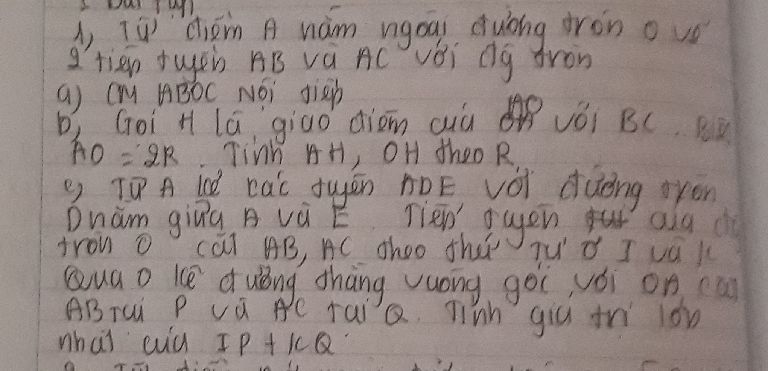 1, Từ điểm A nằm ngoài đường tròn O vẽ
2 tiếp tuyến AB và AC với đg tròn
a) CM ABOC Nội tiếp
b, Gọi H là giao điểm của AO với BC.
AO = 2R. Tính AH, OH theo R
c) Từ A kẻ các tuyến ADE với đường tròn
D nằm giữa A và E. Tiếp tuyến của
tròn O cắt AB, AC theo thứ Tự ở I và K
Qua O kẻ đường thẳng vuông góc với OA
AB Tại P và AC Tại Q. Tính giá trị lớn
nhất của IP + KQ